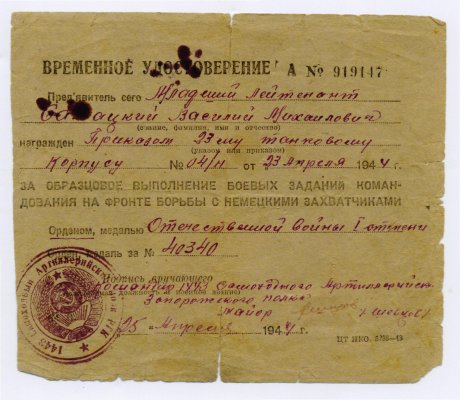 ВРЕМЕННОЕ УДОСТОВЕРЕНИЕ А № 919147
Пред'явитель сего Младший Лейтенант
Василий Михайлович
(звание, фамилия, имя и отчество)
награжден Приказом 23му танковому
(указом или приказом)
Корпусу № 04/н от 23 Апреля 1944 г.
ЗА ОБРАЗЦОВОЕ ВЫПОЛНЕНИЕ БОЕВЫХ ЗАДАНИЙ КОМАН-
ДОВАНИЯ НА ФРОНТЕ БОРЬБЫ С НЕМЕЦКИМИ ЗАХВАТЧИКАМИ
Орденом, медалью Отечественной Войны I степени
медаль за № 40340
Подпись вручающего
1443 Самоходного Артиллерийск
Запорожского полка
майор
25 Апреля 1944 г.
ЦТ НКО.